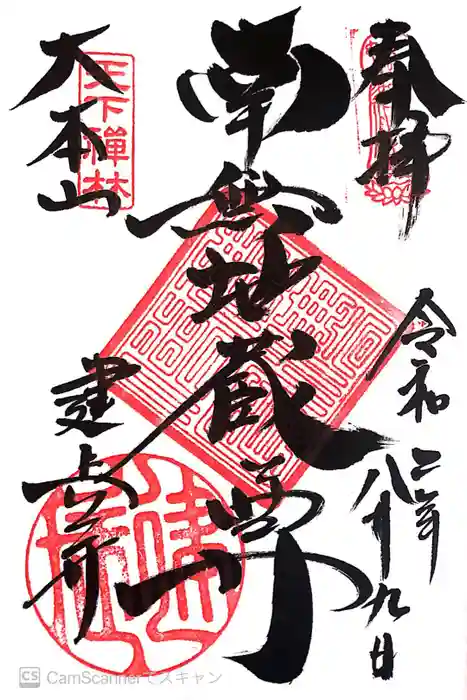 奉拝
令和二年
八月十九日
南無地蔵尊
天下禅林
大本山
建長寺
CS CamScannerでスキャン